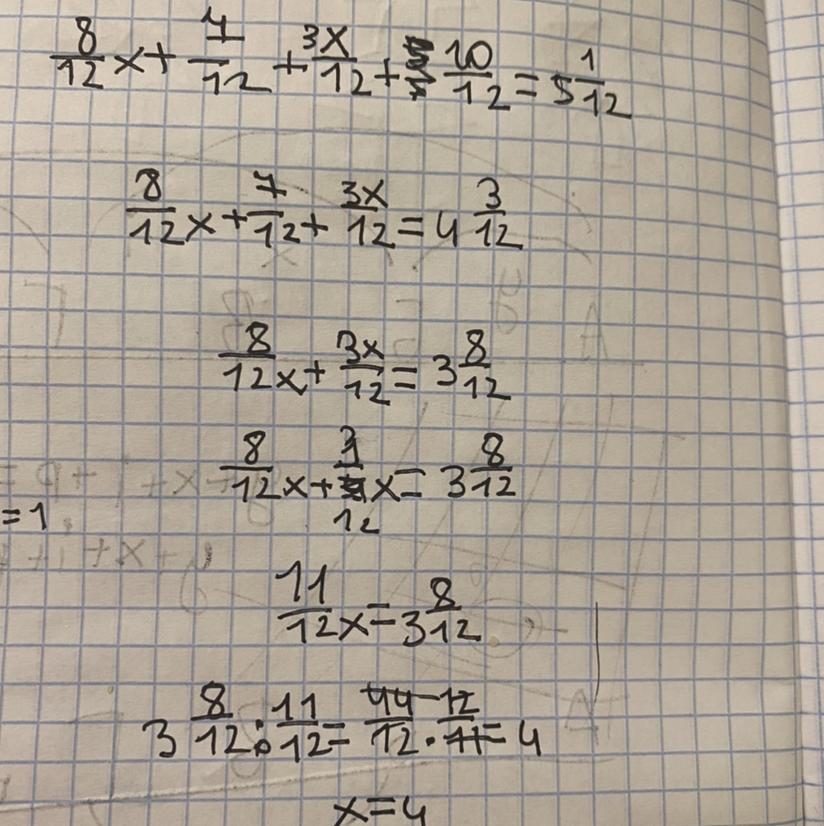 8/12 x + 7/12 + 3x/12 + 10/12 = 5 1/12
8/12 x + 7/12 + 3x/12 = 4 3/12
8/12 x + 3x/12 = 3 8/12
8/12 x + 3/12 x = 3 8/12
= 1
11/12 x = 3 8/12
3 8/12 : 11/12 = 44/12 · 12/11 = 4
x = 4